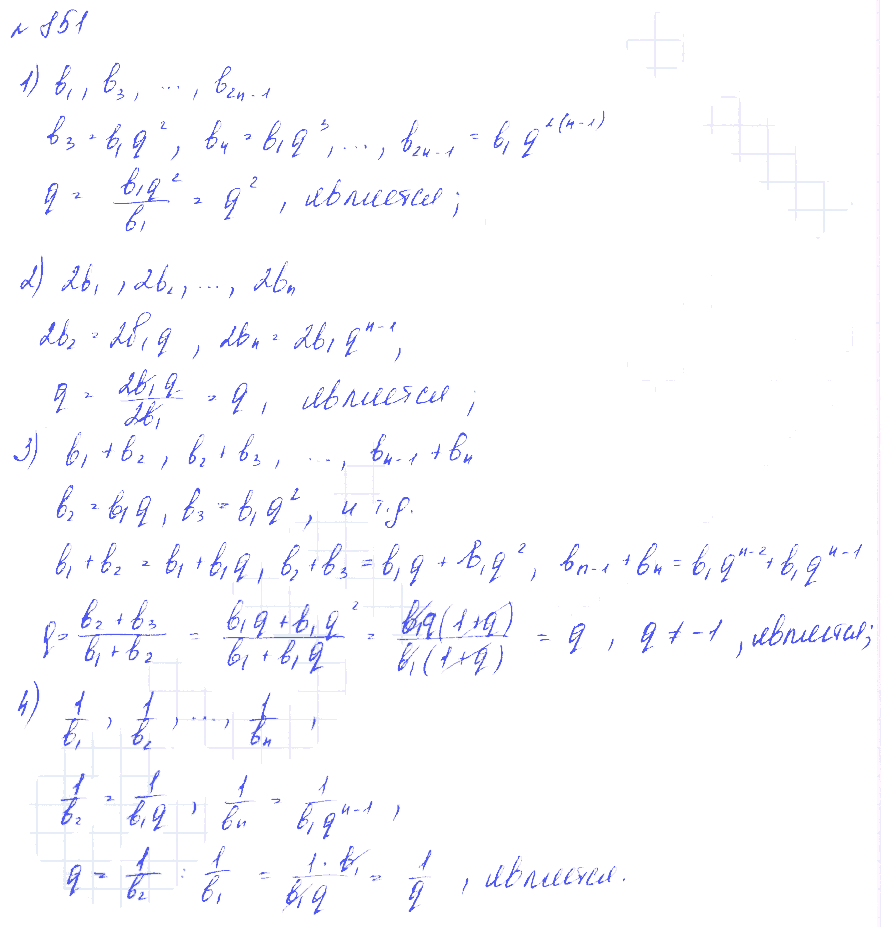 № 851
1) b₁, b₃, ..., b₂ₙ₋₁
b₃ = b₁q², b₄ = b₁q³, ..., b₂ₙ₋₁ = b₁q²⁽ⁿ⁻¹⁾
q = b₁q²/b₁ = q², является;
2) 2b₁, 2b₂, ..., 2bₙ
2b₂ = 2b₁q, 2bₙ = 2b₁qⁿ⁻¹,
q = 2b₁q/2b₁ = q, является;
3) b₁ + b₂, b₂ + b₃, ..., bₙ₋₁ + bₙ
b₂ = b₁q, b₃ = b₁q², и т.д.
b₁ + b₂ = b₁ + b₁q, b₂ + b₃ = b₁q + b₁q², bₙ₋₁ + bₙ = b₁qⁿ⁻² + b₁qⁿ⁻¹
q = (b₂ + b₃)/(b₁ + b₂) = (b₁q + b₁q²)/(b₁ + b₁q) = b₁q(1+q)/b₁(1+q) = q, q ≠ -1, является;
4) 1/b₁, 1/b₂, ..., 1/bₙ,
1/b₂ = 1/b₁q, 1/bₙ = 1/b₁qⁿ⁻¹,
q = 1/b₂ : 1/b₁ = 1·b₁/b₁q = 1/q, является.